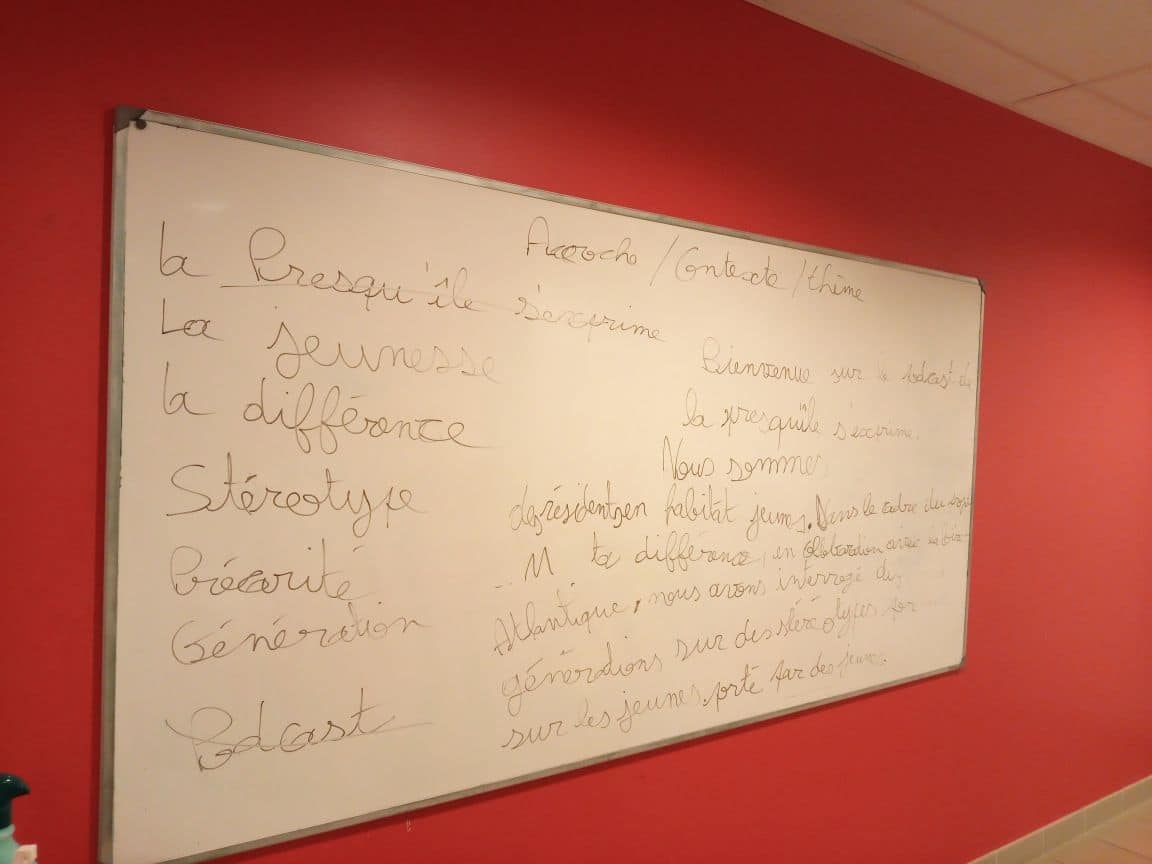 Accroche / Contexte / thème
la Presqu'île s'exprime
La jeunesse
la différence
Stéréotype
Précarité
Génération
Podcast
Bienvenue sur le podcast de
la presqu'île s'exprime.
Nous sommes
des résidents en habitat jeunes. Dans le cadre du
M ta différence, en collaboration avec
Atlantique, nous avons interrogé
générations sur des stéréotypes
sur les jeunes, porté par des jeunes.